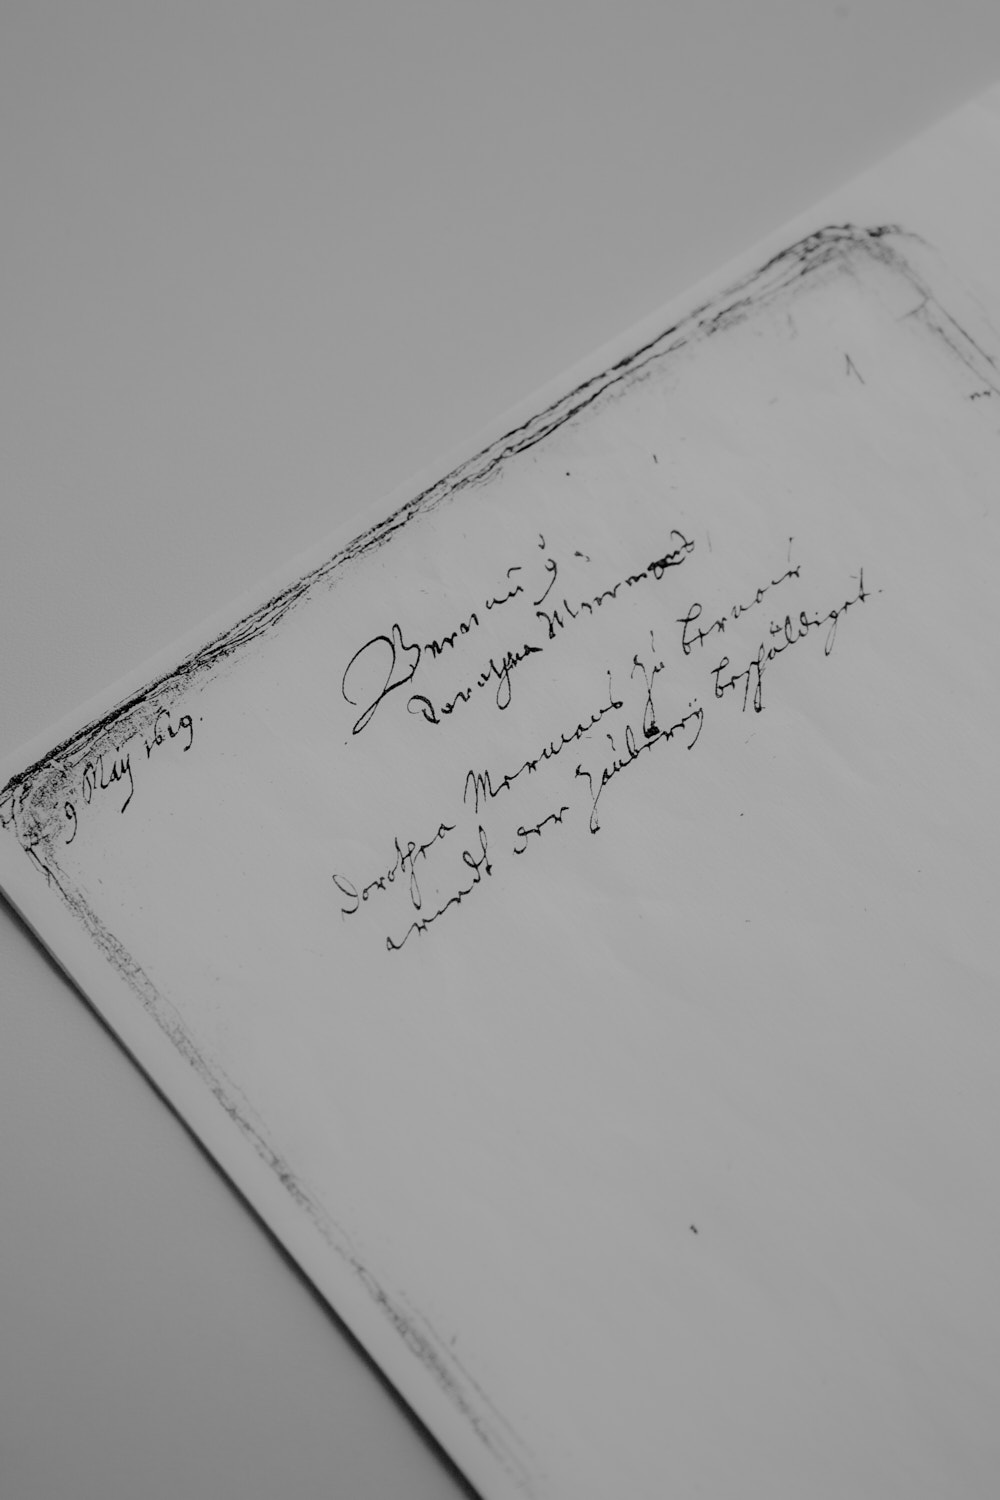 9 May 1619.
1
Bernaŭ 9.
Dorothea Meermans
Dorothea Mermans zŭ Bernaŭ
wirdt der Zaŭberey beschŭldiget.